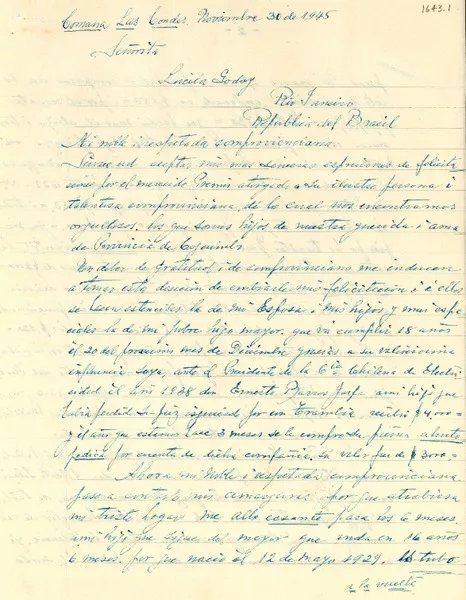 1643.1
Comuna Las Condes, Noviembre 30 de 1945
Señorita
Lucila Godoy
Rio Janeiro
Republica del Brasil
Mi noble i respetada comprovinciana
ud aceptar mis mas sinceras espreciones de felicita
ciones por el merecido Premio otorgado a su ilustre persona i
talentosa comprovinciana de la cual nos encontramos
orgullosos, los que somos hijos de nuestra querida i ama
da Provincia de Coquimbo.
Un deber de gratitud i de comprovinciano me inducen
a tomar esta desición de embiarle mis felicitación i a ellas
se hacen estencibles la de mi Esposa i mis hijos y mas espe
ciales la de mi pobre hijo mayor que va cumplir 18 años
el 20 del procsimo mes de Diciembre gracias a su valiosisima
influencia suya, ante el Presidente de la Cia Chilena de Electri
cidad el año 1938 don Ernesto Barros Jarpa a mi hijo que
había perdido su piz izquierdo por un tranvia recibi $4,000
y el año que estamos hace 3 meses se le compro su pierna
por cuenta de dicha compañia, su valor fue de $
Ahora mi noble i respetada comprovinciana
paso a contarle mis amarguras por que atrabiesa
mi triste hogar me allo cesante para los 6 meses
a mi hijo que sigue del mayor que anda en 16 años
6 meses. por que nació el 12 de mayo 1929. tubo
a la vuelta